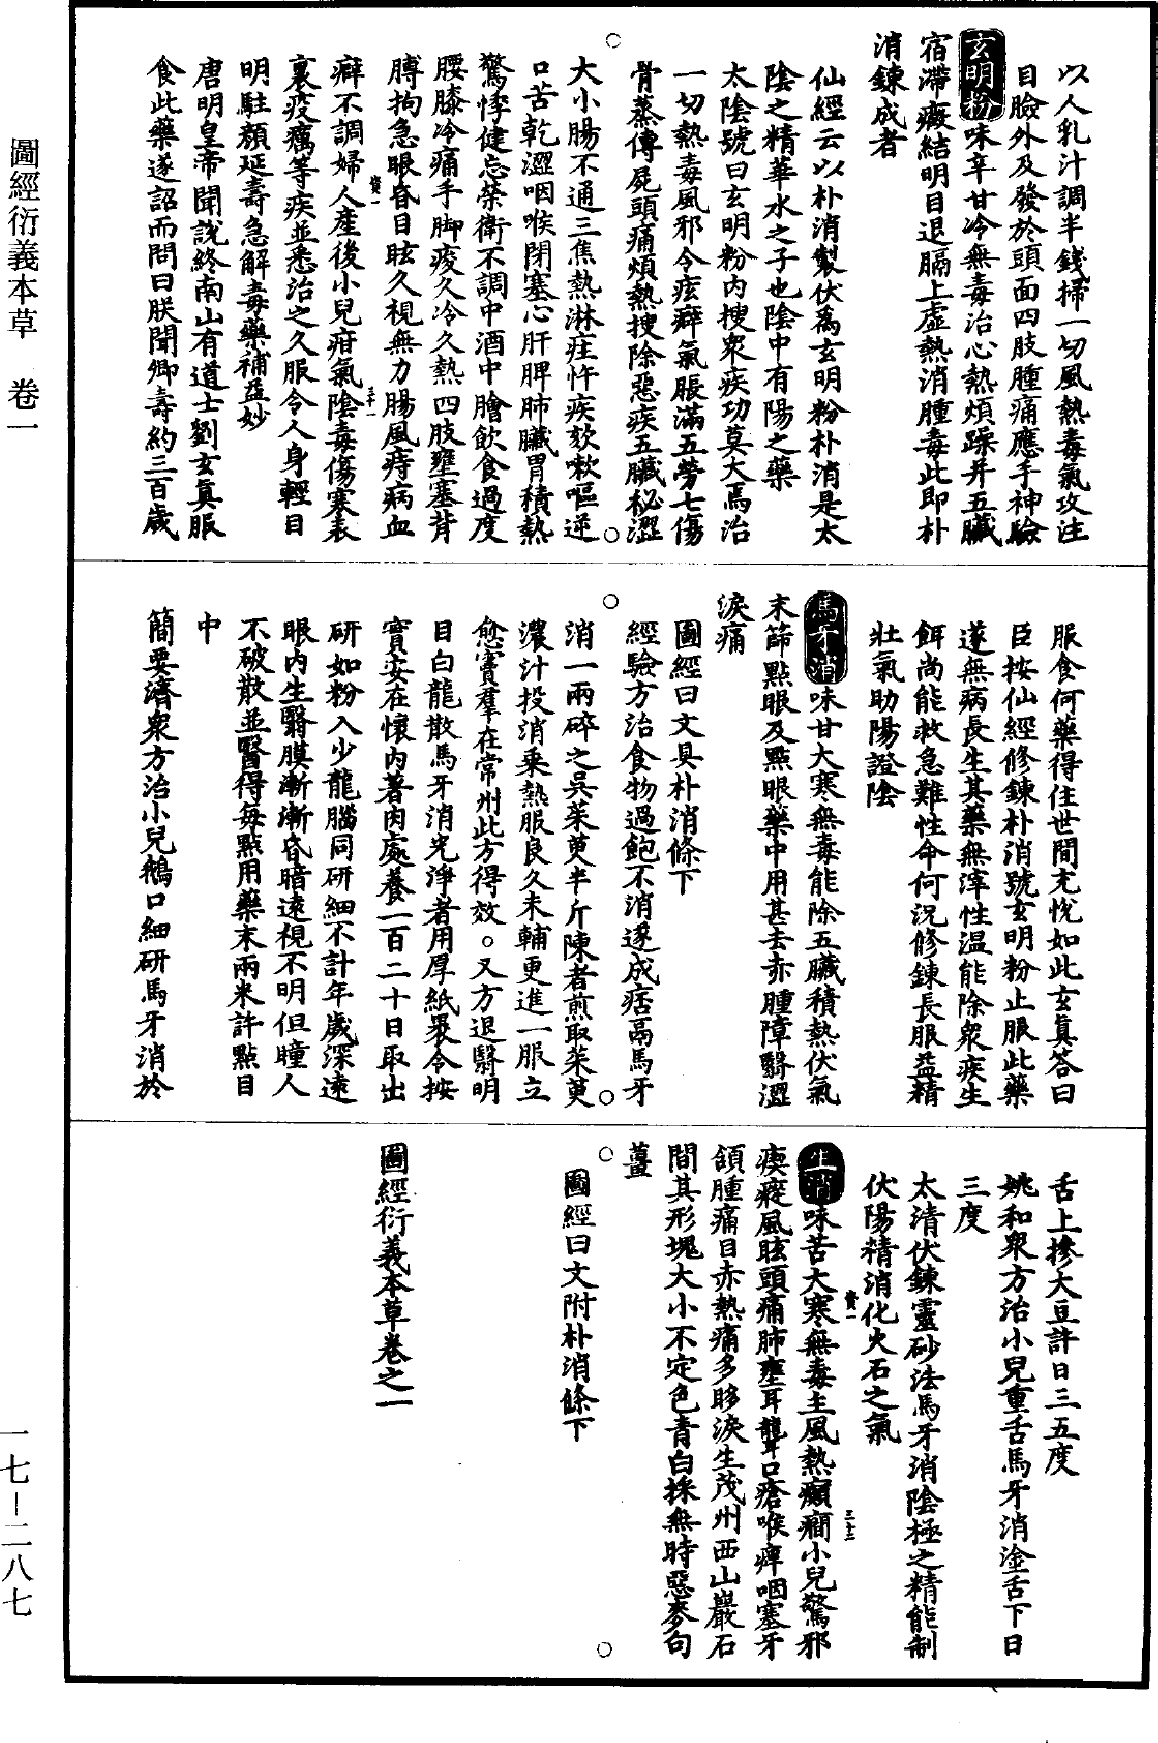 圖經衍義本草　卷一
一七—二八七
以人乳汁調半錢掃一切風熱毒氣攻注
目臉外及發於頭面四肢腫痛應手神驗
玄明粉味辛甘冷無毒治心熱煩躁并五臟
宿滯癥結明目退膈上虛熱消腫毒此即朴
消鍊成者
仙經云以朴消製伏為玄明粉朴消是太
陰之精華水之子也陰中有陽之藥
太陰號曰玄明粉內搜衆疾功莫大焉治
一切熱毒風邪令痃癖氣脹滿五勞七傷
骨蒸傳屍頭痛煩熱搜除惡疾五臟秘澀
大小腸不通三焦熱淋疰忤疾欬嗽嘔逆
口苦乾澀咽喉閉塞心肝脾肺臟胃積熱
驚悸健忘榮衛不調中酒中膾飲食過度
腰膝冷痛手脚痠久冷久熱四肢壅塞背
膊拘急眼昏目眩久視無力腸風痔病血
癖不調婦人產後小兒疳氣陰毒傷寒表
裏疫癘等疾並悉治之久服令人身輕目
明駐顏延壽急解毒藥補益妙
唐明皇帝聞說終南山有道士劉玄真服
食此藥遂詔而問曰朕聞卿壽約三百歲
服食何藥得住世間充悅如此玄真答曰
臣按仙經修鍊朴消號玄明粉止服此藥
遂無病長生其藥無滓性温能除衆疾生
餌尚能救急難性命何況修鍊長服益精
壯氣助陽證陰
馬牙消味甘大寒無毒能除五臟積熱伏氣
末篩點眼及點眼藥中用甚去赤腫障翳澀
淚痛
圖經曰文具朴消條下
經驗方治食物過飽不消遂成痞鬲馬牙
消一兩碎之吳茱萸半斤陳者煎取茱萸
濃汁投消乘熱服良久未輔更進一服立
愈竇羣在常州此方得效。又方退翳明
目白龍散馬牙消光淨者用厚紙裹令按
實安在懷內著肉處養一百二十日取出
研如粉入少龍腦同研細不計年歲深遠
眼內生翳膜漸漸昏暗遠視不明但瞳人
不破散並醫得每點用藥末兩米許點目
中
簡要濟衆方治小兒鵝口細研馬牙消於
舌上摻大豆許日三五度
姚和衆方治小兒重舌馬牙消塗舌下日
三度
太清伏鍊靈砂法馬牙消陰極之精能制
伏陽精消化火石之氣
生消味苦大寒無毒主風熱癲癇小兒驚邪
瘈瘲風眩頭痛肺壅耳聾口瘡喉痺咽塞牙
頷腫痛目赤熱痛多眵淚生茂州西山巖石
間其形塊大小不定色青白採無時惡麥句
薑
圖經曰文附朴消條下
圖經衍義本草卷之一